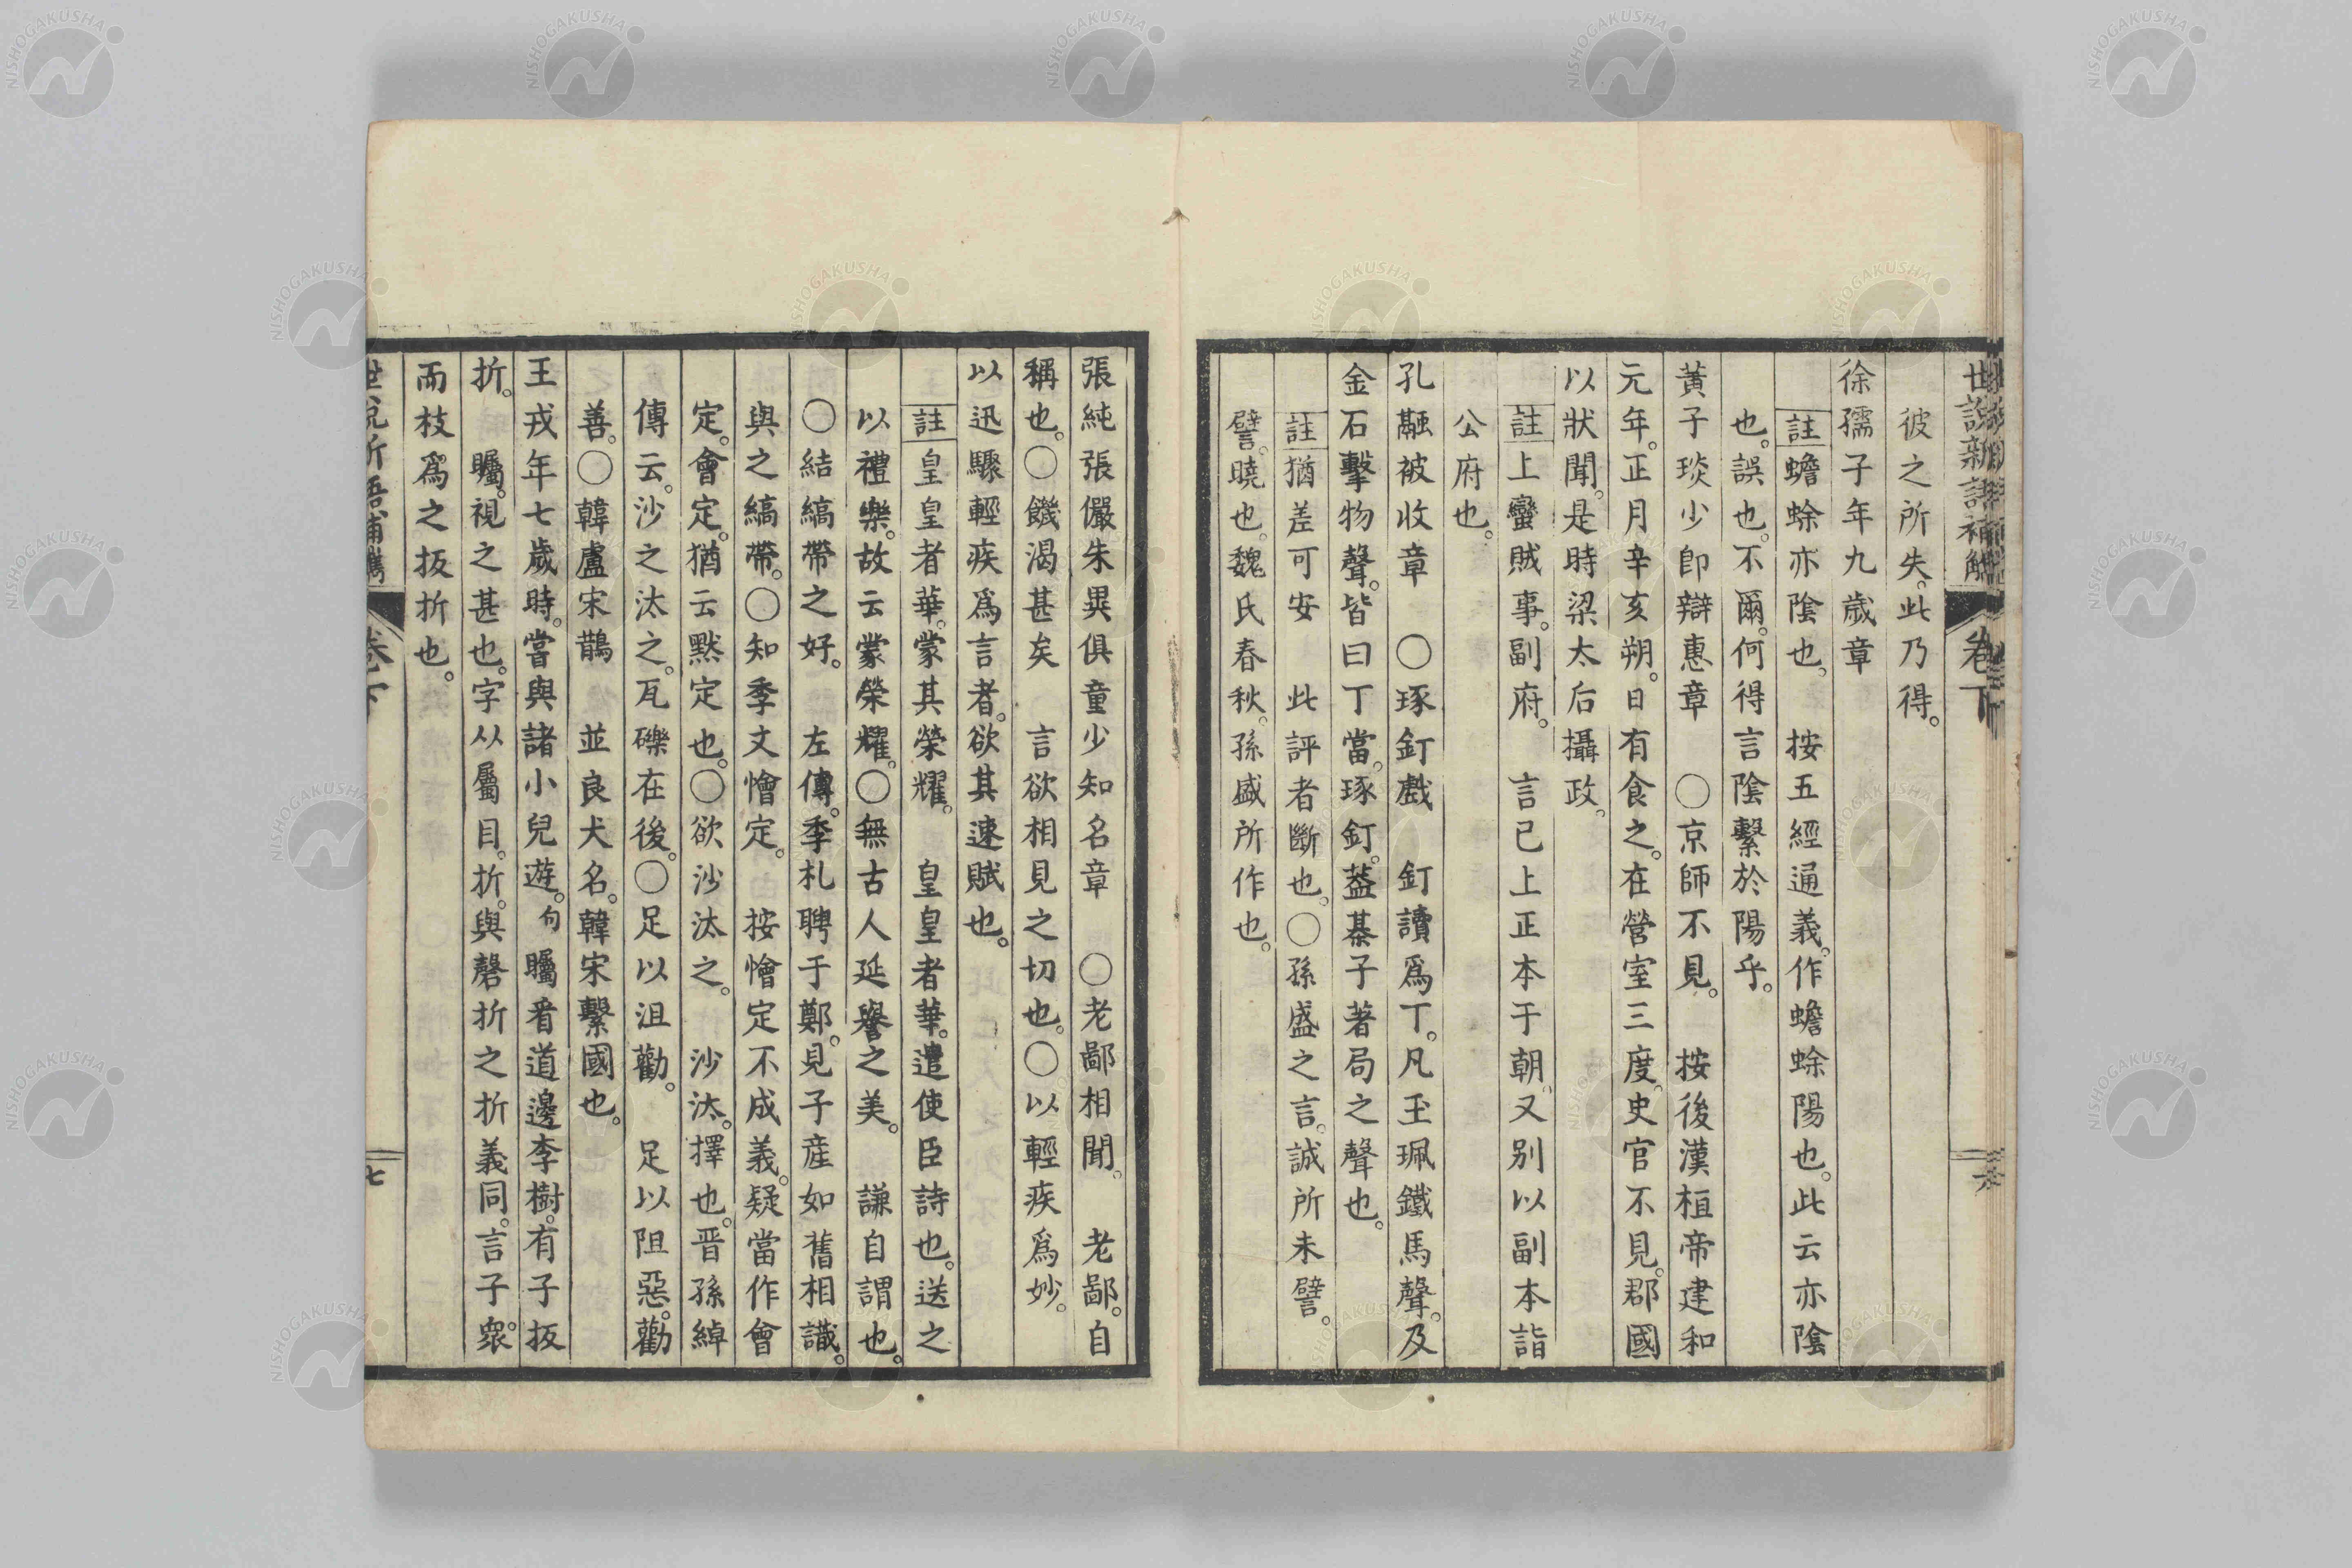 世說新語補觿 卷下 六
彼之所失。此乃得。
徐孺子年九歲章
註蟾蜍亦陰也。 按五經通義。作蟾蜍陽也。此云亦陰
也。誤也。不爾。何得言陰繫於陽乎。
黃子琰少卽辯惠章 〇京師不見。 按後漢桓帝建和
元年。正月辛亥朔。日有食之。在營室三度。史官不見。郡國
以狀聞。是時梁太后攝政。
註上蠻賊事。副府。 言已上正本于朝。又别以副本詣
公府也。
孔融被收章 〇琢釘戲 釘讀爲丁。凡玉珮鐵馬聲。及
金石擊物聲。皆曰丁當。琢釘。蓋棊子著局之聲也。
註猶差可安 此評者斷也。〇孫盛之言。誠所未譬。
譬。曉也。魏氏春秋。孫盛所作也。
張純張儼朱異俱童少知名章 〇老鄙相聞。 老鄙。自
稱也。〇饑渴甚矣 言欲相見之切也。〇以輕疾爲妙。
以迅驟輕疾爲言者。欲其速賦也。
註皇皇者華。蒙其榮耀。 皇皇者華。遣使臣詩也。送之
以禮樂。故云蒙榮耀。〇無古人延譽之美。 謙自謂也。
〇結縞帶之好。 左傳。季札聘于鄭。見子產如舊相識。
與之縞帶。〇知季文懀定。 按懀定不成義。疑當作會
定。會定。猶云黙定也。〇欲沙汰之。 沙汰。擇也。晋孫綽
傳云。沙之汰之。瓦礫在後。〇足以沮勸。 足以阻惡。勸
善。〇韓盧宋鵲 並良犬名。韓宋繫國也。
王戎年七歲時。嘗與諸小兒遊。句矚看道邊李樹。有子扳
折。 矚。視之甚也。字从屬目。折。與磬折之折義同。言子衆。
而枝爲之扳折也。
世說新語補觿 卷下 七